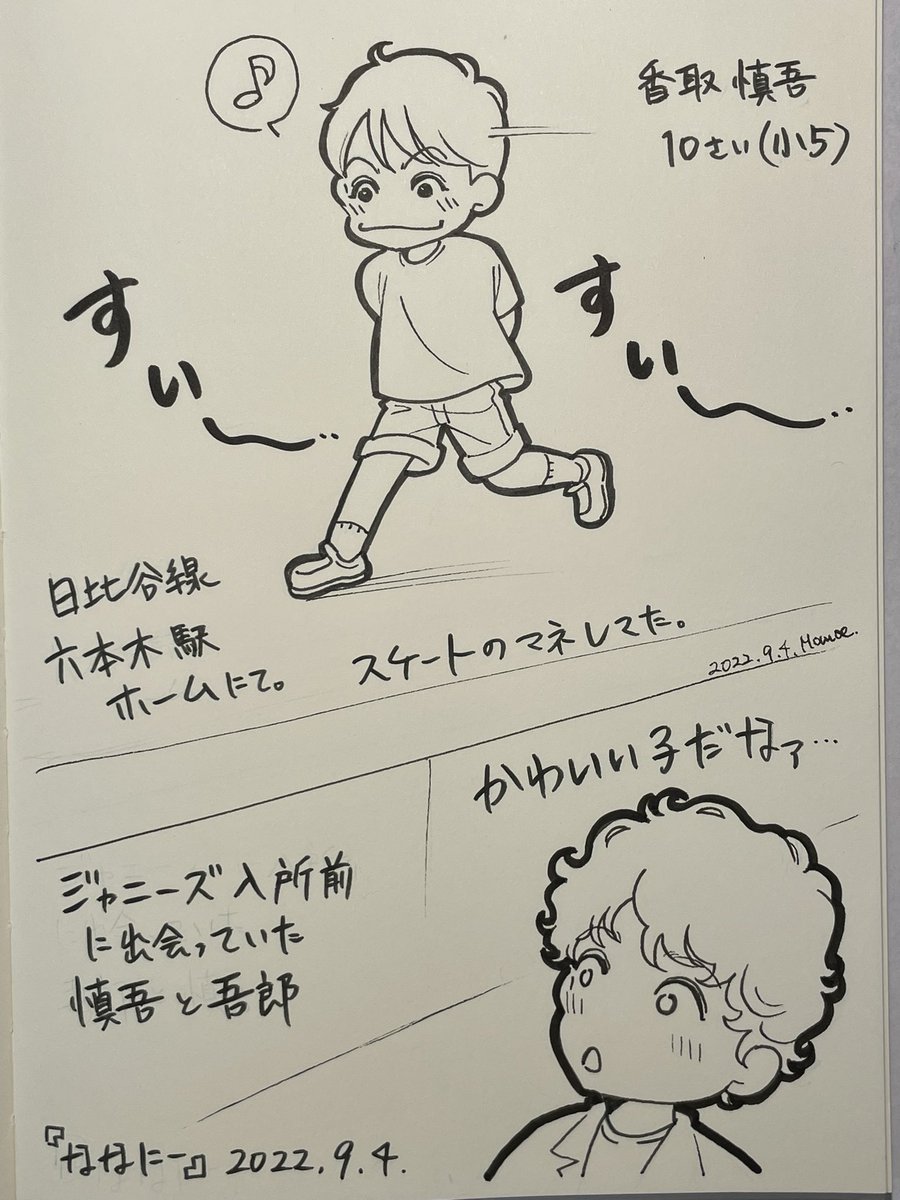 香取 慎吾
10さい(小5)
すい〜‥
すい〜‥
日比谷線
六本木駅
ホームにて。
スケートのマネしてた。
2022.9.4. Momoe.
かわいい子だなァ…
ジャニーズ入所前
に出会っていた
慎吾と吾郎
『ななにー』2022.9.4.